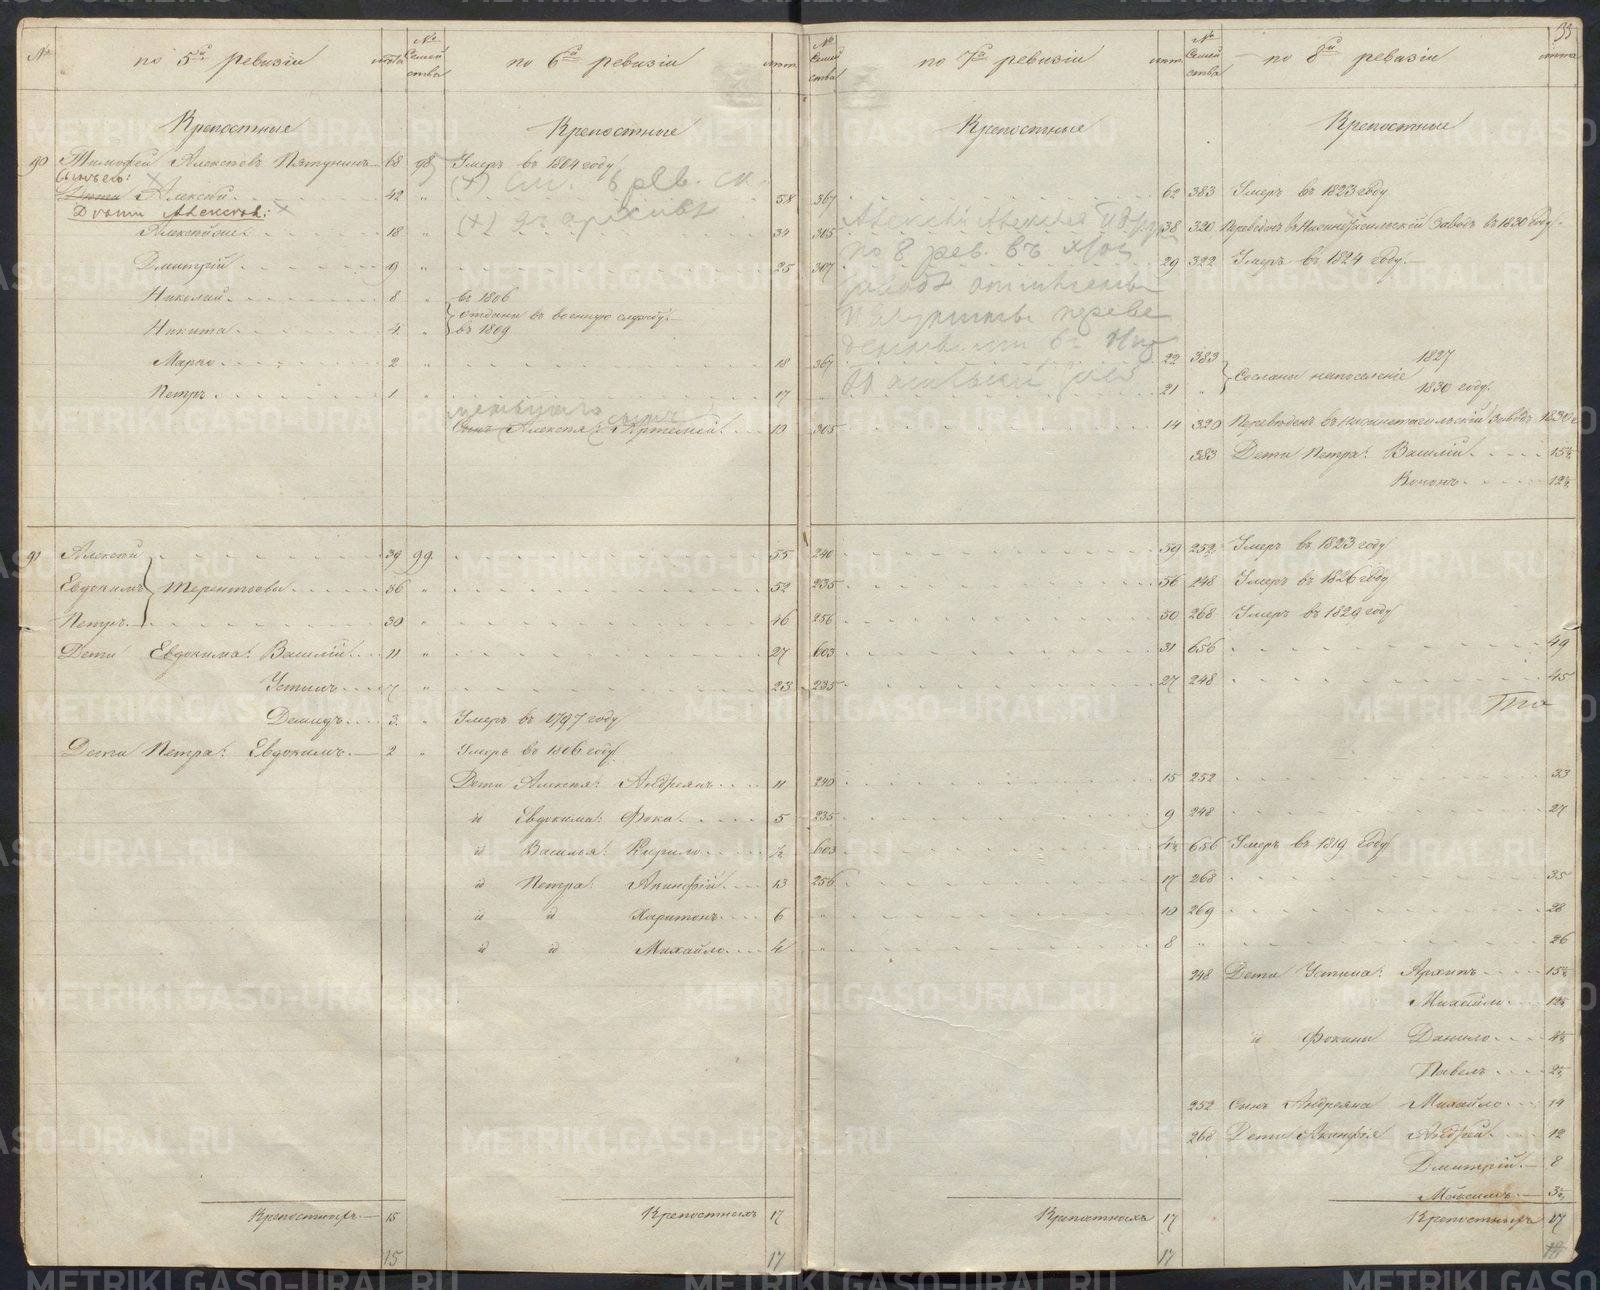 33
№ по 5й ревизіи лѣта № Семей ства по 6й ревизіи лѣт. № Семей ства по 7й ревизіи лѣт. № Семей ства по 8й ревизіи лѣта
Крепостные Крепостные Крепостные Крепостные
90 Тимофей Алексѣевъ 68 98 Умеръ въ 1804 году
Сынъ его:
Алексѣй 42 " 58 367 62 383 Умеръ въ 1823 году
Дѣти Алексѣя:
Алексѣй 18 " 34 305 38 320 Переведенъ въ Нижнетагильской Заводъ въ 1830 году.
Дмитрій 9 " 25 307 29 322 Умеръ въ 1824 году.
Николай 8 " въ 1806
отданы въ военную службу.
Никита 4 " въ 1809
Марко 2 " 18 367 22 383 1827
Сосланы на поселеніе
Петръ 1 " 17 " 21 " 1830 году.
меньшаго сынъ
Сынъ Алексѣя: Артемій 10 305 14 320 Переведенъ въ Нижнетагильскій Заводъ 1830 г
383 Дети Петра: Василій 15½
12½
91 Алексѣй 39 99 55 240 59 252 Умеръ въ 1823 году
Евдокимъ Терентьевы 36 " 52 235 56 248 Умеръ въ 1826 году
Петръ 30 " 46 256 50 268 Умеръ въ 1829 году
Дети Евдокима: Василій 11 " 27 603 31 656 49
Устинъ 7 " 23 235 27 248 45
Демидъ 3 " Умеръ въ 1797 году
Дети Петра: Евдокимъ 2 " Умеръ въ 1806 году
Дети Алексѣя: Андреянъ 11 240 15 252 33
и Евдокима: Фока 5 235 9 248 27
и Василья: Кирило ½ 603 4½ 656 Умеръ въ 1819 году
и Петра: Акинфій 13 256 17 268 35
и и Харитонъ 6 " 10 269 28
и и Михайло 4 " 8 " 26
248 Дети Устина: Архипъ 15½
Михайло 12½
и Фокины Данило 4½
Павелъ 2½
252 Сынъ Андреяна Михайло 14
268 Дети Акинфія Андрей 12
Дмитрій 8
Максимъ 3½
Крепостныхъ 15 Крепостныхъ 17 Крепостныхъ 17 Крепостныхъ 17
15 17 17
METRIKI.GASO-URAL.RU